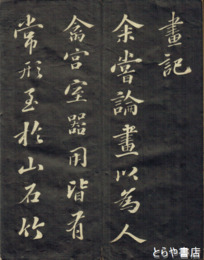 畫記
余嘗論畫以為人
禽宮室器用皆有
常形至於山石竹
とらや書房